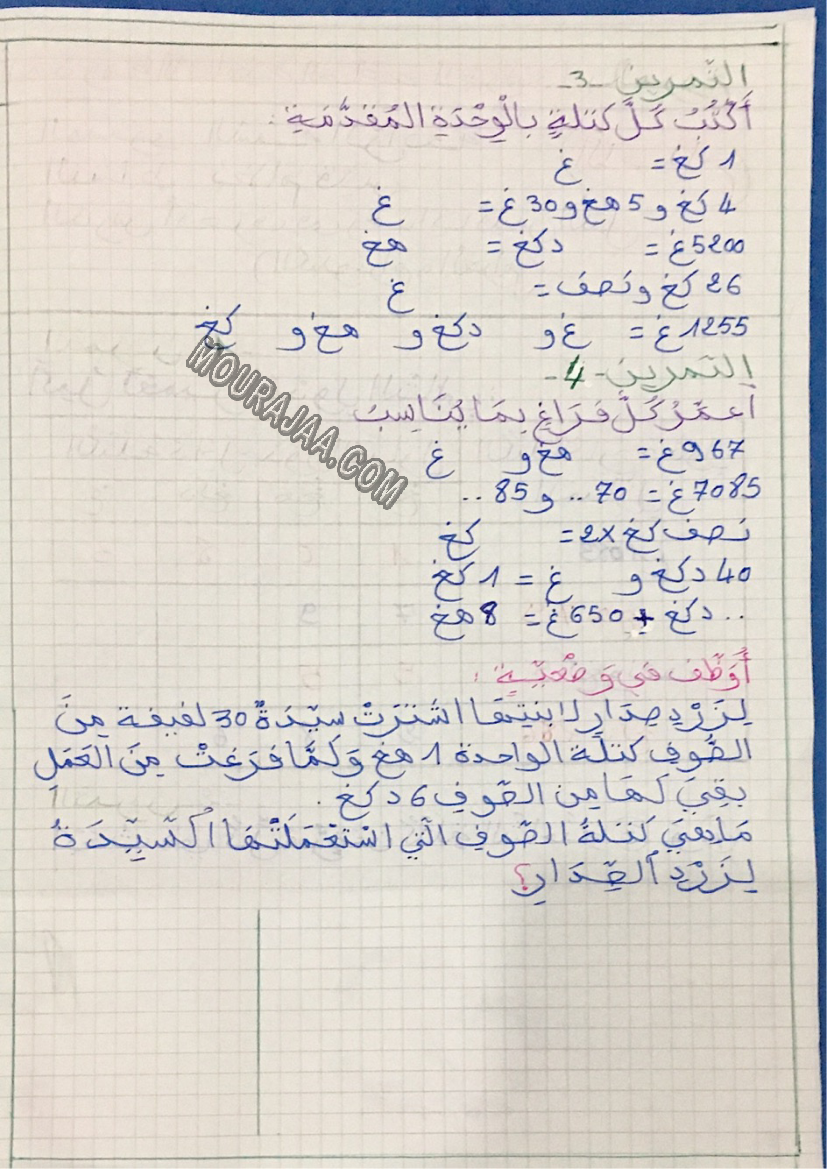 التمرين -3-
أَكْتُبُ كُلَّ كتلةٍ بِالْوِحْدَةِ المُقدَّمَةِ:
1 كغ = غ
4 كغ و 5 هغ و 30 غ = غ
5200 غ = دكغ = هغ
26 كغ ونصف = غ
1255 غ = غ و دكغ و هغ و كغ
التمرين -4-
أعمّرُ كُلَّ فَرَاغٍ بِمَا يُنَاسِبُ
967 غ = هغ و غ
7085 غ = 70 .. و 85 ..
نصف كغ x2 = كغ
40 دكغ و غ = 1 كغ
.. دكغ + 650 غ = 8 هغ
أُوَظِّف في وَضْعِيّةٍ :
لِزَرْدِ صِدَارٍ لابنتها اشْتَرَتْ سيّدَةٌ 30 لفيفة مِنَ
الصُّوفِ كتلَة الواحدة 1 هغ وَلَمَّا فَرَغَتْ مِنَ العَمَلِ
بقِيَ لَهَا مِن الصّوفِ 6 دكغ .
مَا هيَ كتلَةُ الصّوفِ الّتي اسْتَعْمَلَتْهَا السَّيّدَةُ
لِزَرْدِ الصِّدَارِ؟
MOURAJAA.COM